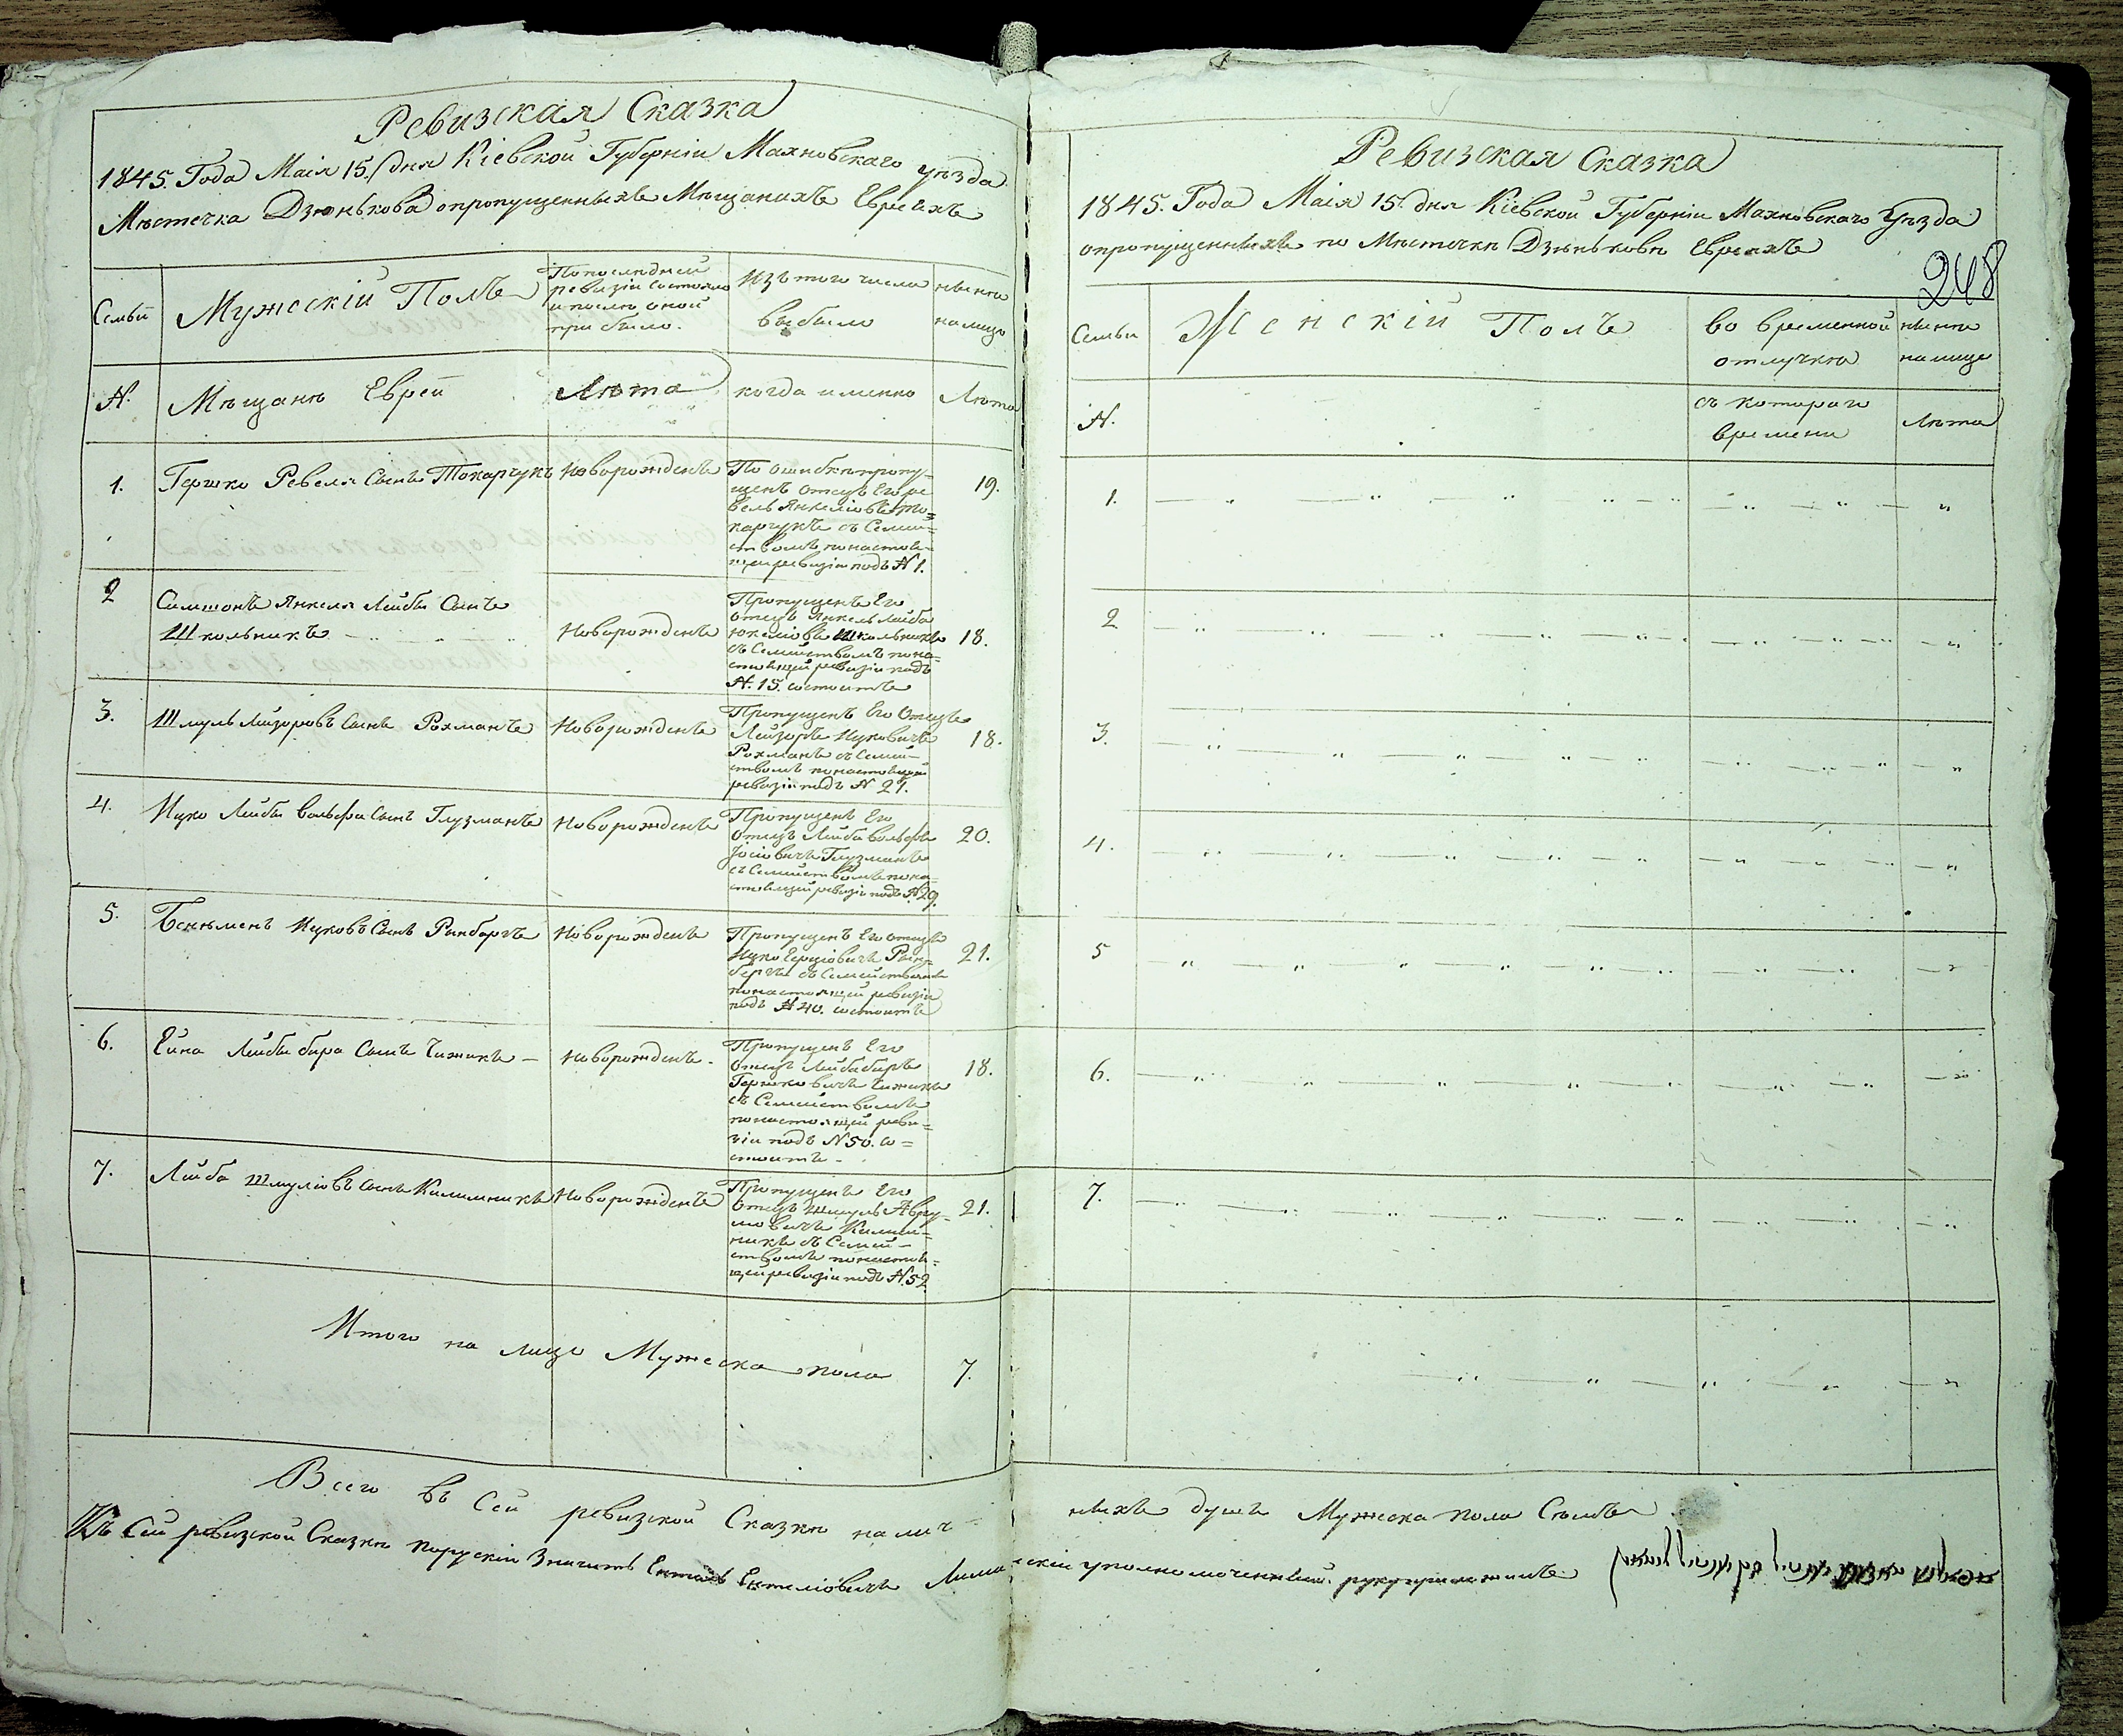 Ревизская Сказка
1845. Года Маія 15. дня Кіевской Губерніи Махновскаго уѣзда
Мѣстечка Дзюнькова опропущенныхъ Мѣщанахъ Евреяхъ
Семьи
Мужескій Полъ
По последней
ревизіи состояло
и после оной
прибыло.
Изъ того числа
выбыло
нынѣ
налицо
№.
Мѣщанѣ Евреи
Лѣта
когда именно
Лѣта
1.
Гершко Ревеля Сынъ Токарчукъ
Новорожденъ
По ошибкѣ пропу-
щенъ отецъ Его ре
вель Янкеліовъ То=
карчукъ съ Семи=
ствомъ по настоя-
щей ревизіи подъ № 1.
19.
2
Симшонъ Янкеля Лейбы Сынъ
Школьникъ
Новорожденъ
Пропущенъ Его
отецъ Янкель Лейба
Школьникъ
съ Семействомъ по на=
стоящей ревизіи подъ
№. 15. состоитъ
18.
3.
Шмуль Лейзоровъ Сынъ Рохманъ
Новорожденъ
Пропущенъ Его Отецъ
Лейзоръ Ицковичъ
Рохманъ съ Семей-
ствомъ по настоящей
ревизіи подъ № 21.
18.
4.
Ицко Лейбы Вольфа Сынъ Глузманъ
Новорожденъ
Пропущенъ Его
Отецъ Лейба Вольфъ
Іосіовичъ Глузманъ
съ Семействомъ по на=
стоящей ревизіи подъ №29.
20.
5.
Бенѣменъ Ицковъ Сынъ Ринбергъ
Новорожденъ
Пропущенъ Его отецъ
Ицко Рин=
бергъ съ Семействомъ
по настоящей ревизіи
подъ №40. состоитъ
21.
6.
Ейна Лейбы бера Сынъ Чижикъ –
Новорожденъ.
Пропущенъ Его
Отецъ Лейба беръ
Гершковичъ Чижикъ
съ Семействомъ
по настоящей реви=
зіи подъ №50. со=
стоитъ -
18.
7.
Лейба Шмуліовъ Сынъ Килимникъ
Новорожденъ
Пропущенъ Его
Отецъ Шмуль Авру-
мовичъ Килим=
никъ съ Семей-
ствомъ по настоя=
щей ревизіи подъ №.52
21.
Итого на лицо Мужеска пола
7.
Всего въ Сей ревизской Сказкѣ налич-
Къ Сей ревизской Сказкѣ порускіи Значитъ
Ревизская Сказка
1845. Года Маія 15. дня Кіевской Губерніи Махновскаго Уѣзда
опропущенныхъ по Мѣстечкѣ Дзѣньковѣ Евреяхъ
248
Семьи
Женскій Полъ
во временной
отлучкѣ
нынѣ
налице
№.
съ котораго
времени
Лѣта
1.
2
3.
4.
5
6.
7.
ныхъ душъ Мужеска пола Сѣмь
уполномоченный. рукуприложилъ